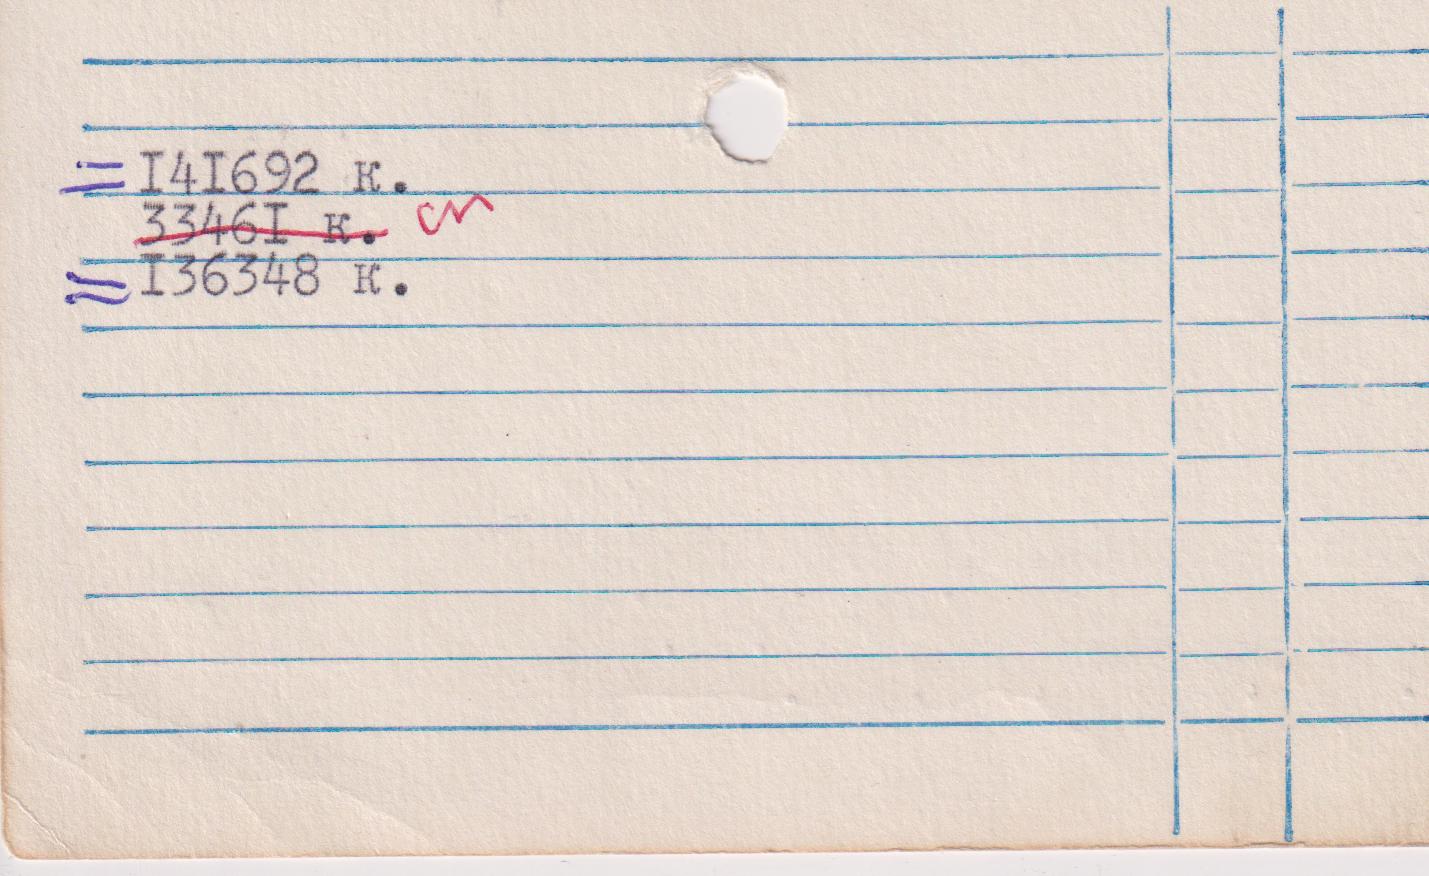 = I4I692 к.
3346I к. сп
= I36348 к.